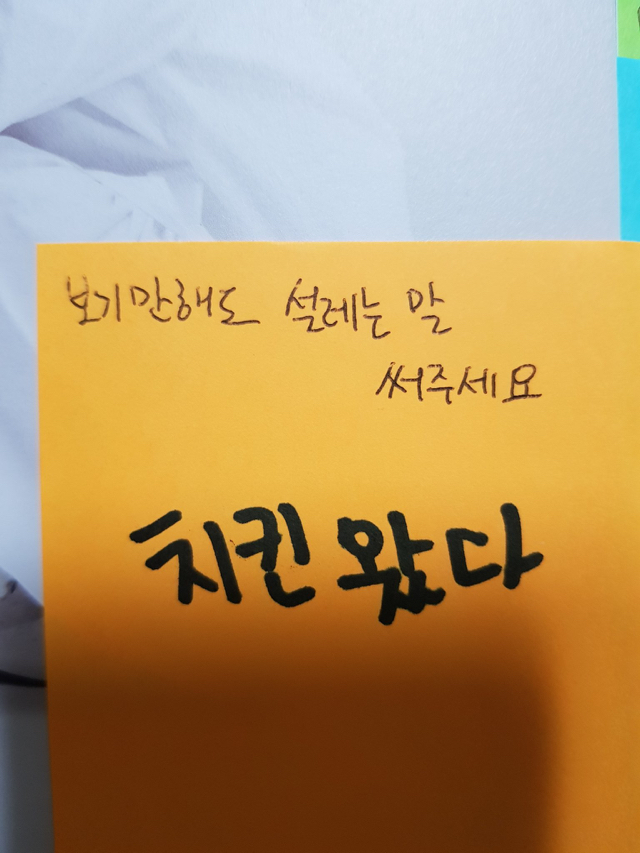 보기만해도 설레는 말
써주세요
치킨 왔다